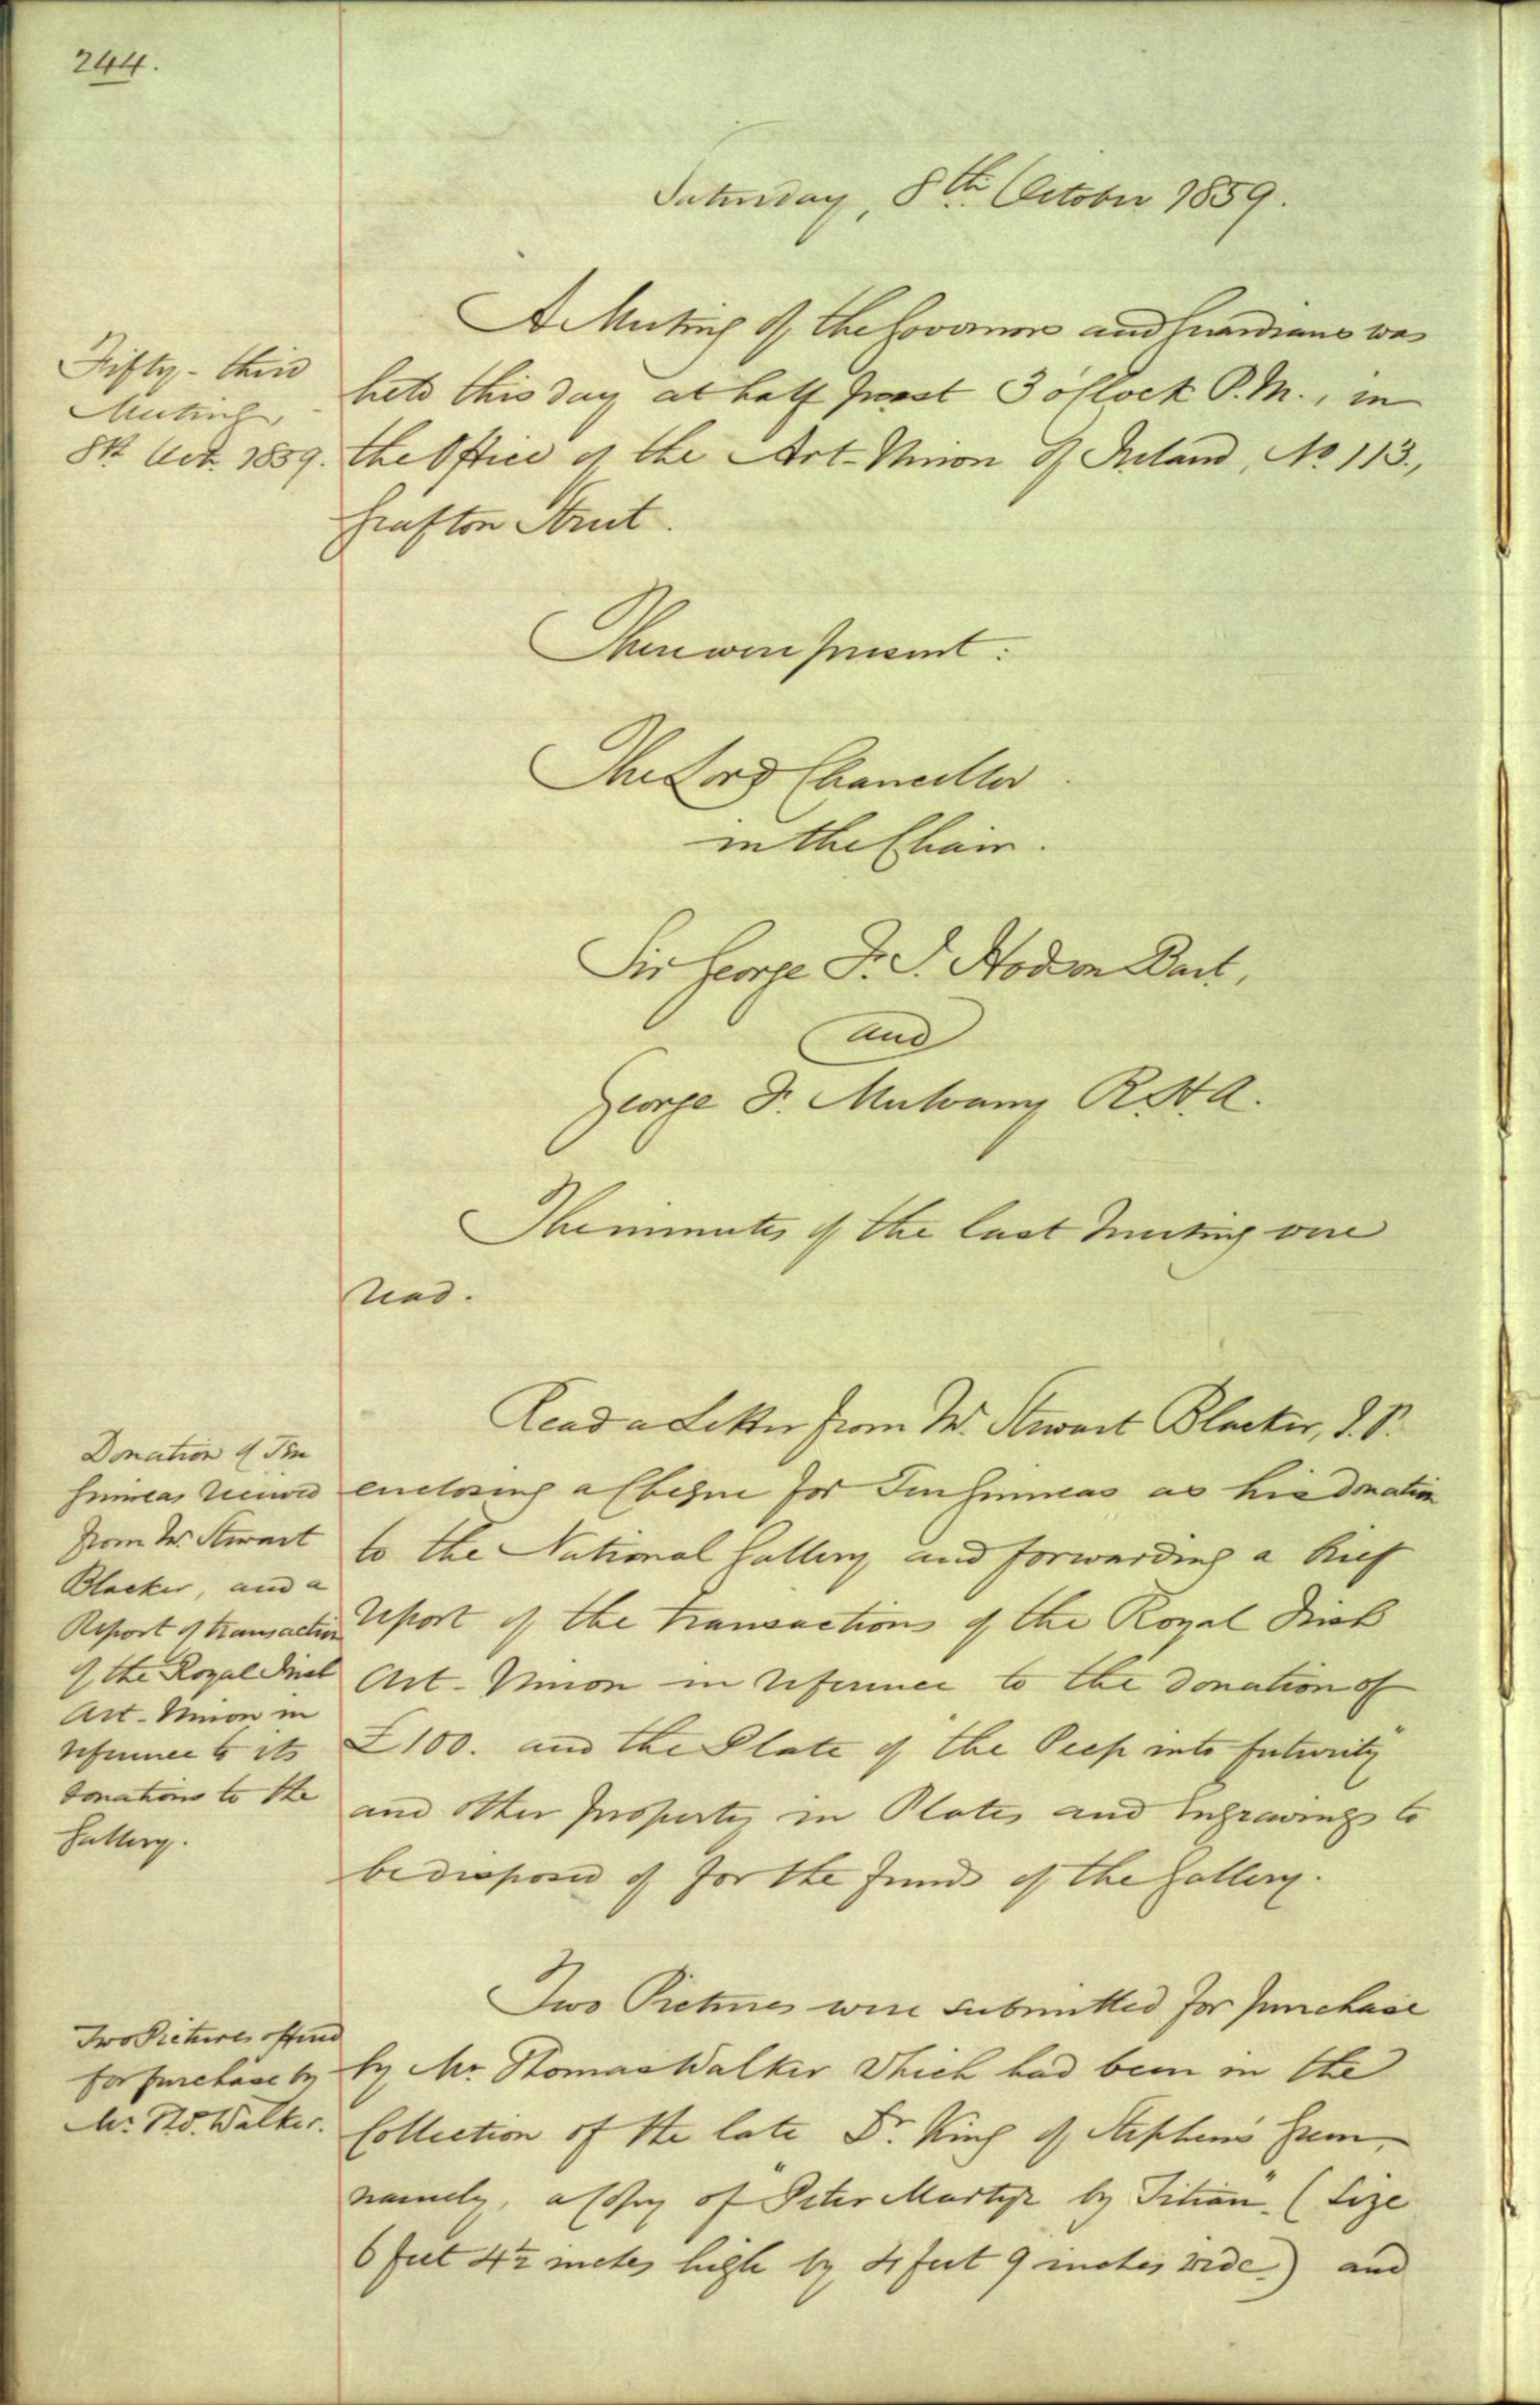 244.
Saturday, 8th October 1859.
Fifty-third
Meeting,
8th Oct. 1859.
A Meeting of the Governors and Guardians was
held this day at half past 3 o'Clock P.M., in
the Office of the Art-Union of Ireland, No 113.,
Grafton Street.
There were present:
The Lord Chancellor
in the Chair.
Sir George F. J. Hodson Bart,
and
George F. Mulvany R.H.A.
The minutes of the last meeting were
read.
Donation of Ten
Guineas received
from Mr. Stewart
Blacker, and a
Report of transactions
of the Royal Irish
Art-Union in
reference to its
donations to the
Gallery.
Read a Letter from Mr. Stewart Blacker, J.P.
enclosing a Cheque for Ten Guineas as his donation
to the National Gallery and forwarding a brief
report of the transactions of the Royal Irish
Art-Union in reference to the donation of
£100. and the Plate of "the Peep into futurity"
and other property in Plates and Engravings to
be disposed of for the funds of the Gallery.
Two Pictures offered
for purchase by
Mr. Ths. Walker.
Two Pictures were submitted for purchase
by Mr. Thomas Walker which had been in the
Collection of the late Dr. King of Stephen's Green,
namely, a Copy of "Peter Martyr by Titian". (Size
6 feet 4½ inches high by 4 feet 9 inches wide) and